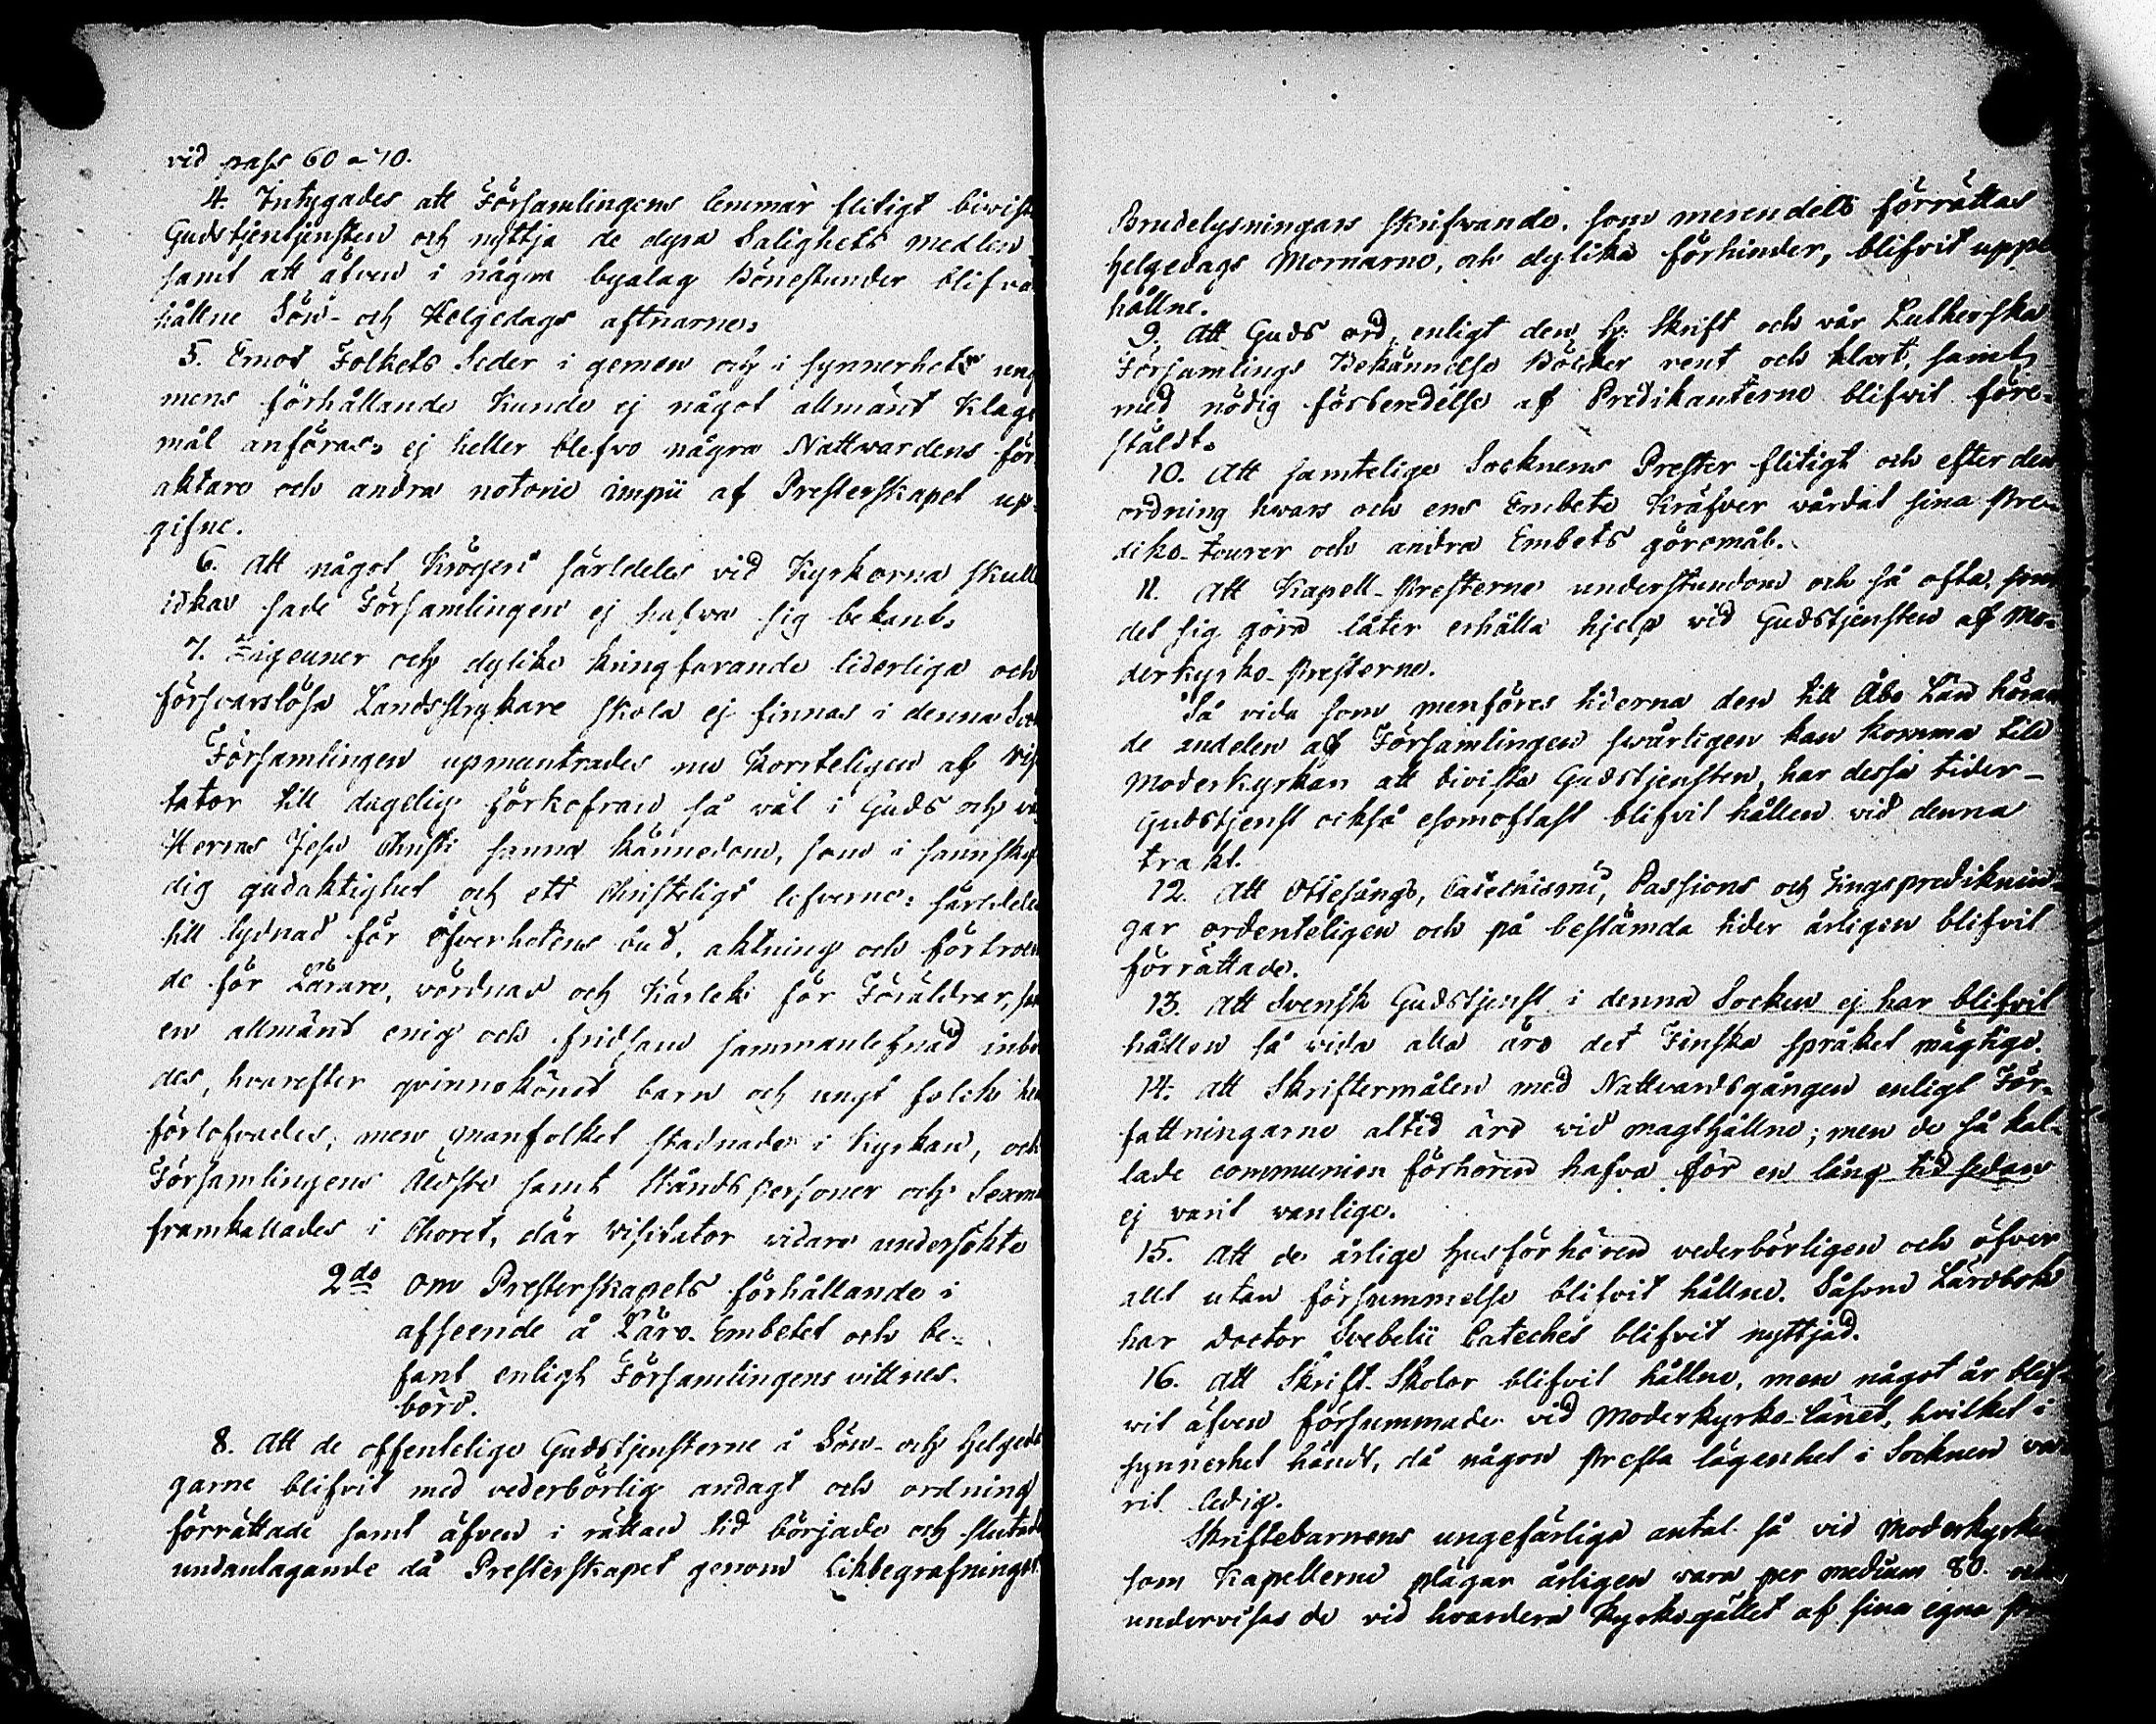 vid pass 60 a 70.
4. Intygades att Församlingens lemmar flitigt bivist
Gudstjentjensten och nyttja de dyra Salighets medlen
samt att äfven i några byalag Bönestunder blifva
hållne Sön- och Helgedags aftnarne.
5. Emot Folkets Seder i gemen och i synnerhet ung
mens förhållande kunde ej något allmänt Klago
mål anföras, ej heller blefvo några Nattwardens för
aktare och andra notorie impii af Presterskapet up-
gifne.
6. Att något Krögeri särldeles vid Kyrkorna skull
idkas sade Församlingen ej hafva sig bekant.
7. Zigeuner och dylike kringfarande liderliga och
försvarslösa Landsstrykare skola ej finnas i denna Soc
Församlingen upmuntrades nu korrteligen af Visi
tator till dagelig förkofran så väl i Guds och vår
Herras Jesu Christi sanna kännedom, som i sannsky
dig gudaktighet och ett Christeligt lefverne: särldele
till lydnad för öfverhetens bud, aktning och förtroen
de för Lärare, vördnad och Kärlek för Föräldrar, sa
en allmänt enig och fridsam sammanlefnad inbö
des, hvarefter qvinnokönet barn och ungt folck he
förlofvades, men manfolket stadnade i Kyrkan, och
Församlingens Äldste samt Ståndspersoner och Sexm
framkallades i Choret, där Visitator vidare undersökte
2do Om Presterskapets förhållande i
afseende å Läro-Embetet och be-
fant enligt Församlingens vittnes-
börd.
8. Att de offentelige Gudstjensterne å Sön- och Helgeda
garne blifvit med vederbörlig andagt och ordning
förrättade samt äfven i rättan tid började och slutade
undantagande då Presterskapet genom Likbegrafningar
Brudelysningars skrifvande, som merendels förrättas
Helgedags Mornarne, och dylika förhinder, blifvit uppe
hållne.
9. Att Guds ord, enligt den H. Skrift och vår Lutherska
Församlings Bekännelse Böcker rent och klart, samt
med nödig förberedelse af Predikanterne blifvit före-
stäldt.
10. Att samtelige Socknens Prester flitigt och efter den
ordning hwars och ens Embete Kräfver vårdat sina Pre-
diko-tourer och andra Embets göromål.
11. Att Kapell-Presterne understundom och så ofta som
det sig göra låter erhålla hjelp vid Gudstjensten af Mo-
derkyrko-Presterne.
Så vida som menföres tiderna den till Åbo Län höran
de andelen af Församlingen swårligen kan komma till
Moderkyrkan att bivista Gudstjensten, har dessa tider-
Gudstjenst också esomoftast blifvit hållen vid denna
trakt.
12. Att Ottesångs, Catechismi, Passions och Tingsprediknin-
gar ordenteligen och på bestämda tider årligen blifvit
förrättade.
13. Att Svensk Gudstjenst i denna Socken ej har blifvit
hållen så vida alla äro det Finska språket mägtige.
14. Att Skriftermålen med Nattvardsgången enligt För-
fattningarne altid äro vid magt hållne; men de så kal-
lade communion förhören hafva för en lång tid sedan
ej varit vanlige.
15. Att de årlige Husförhören vederbörligen och öfver
allt utan försummelse blifvit hållne. Såsom Lärobok
har Doctor Svebelii Cateches blifvit nyttjad.
16. Att Skrift-Skolor blifvit hållne, men något år blif-
vit äfven försummade vid Moderkyrko-länet, hvilket i
synnerhet händt, då någon Presta lägenhet i Socknen va-
rit ledig.
Skriftebarnens ungefärliga antal så vid Moderkyrkan
som Kapellerne plägar årligen vara per medium 80. och
undervisas de vid hvardera Kyrkogället af sina egna Pr